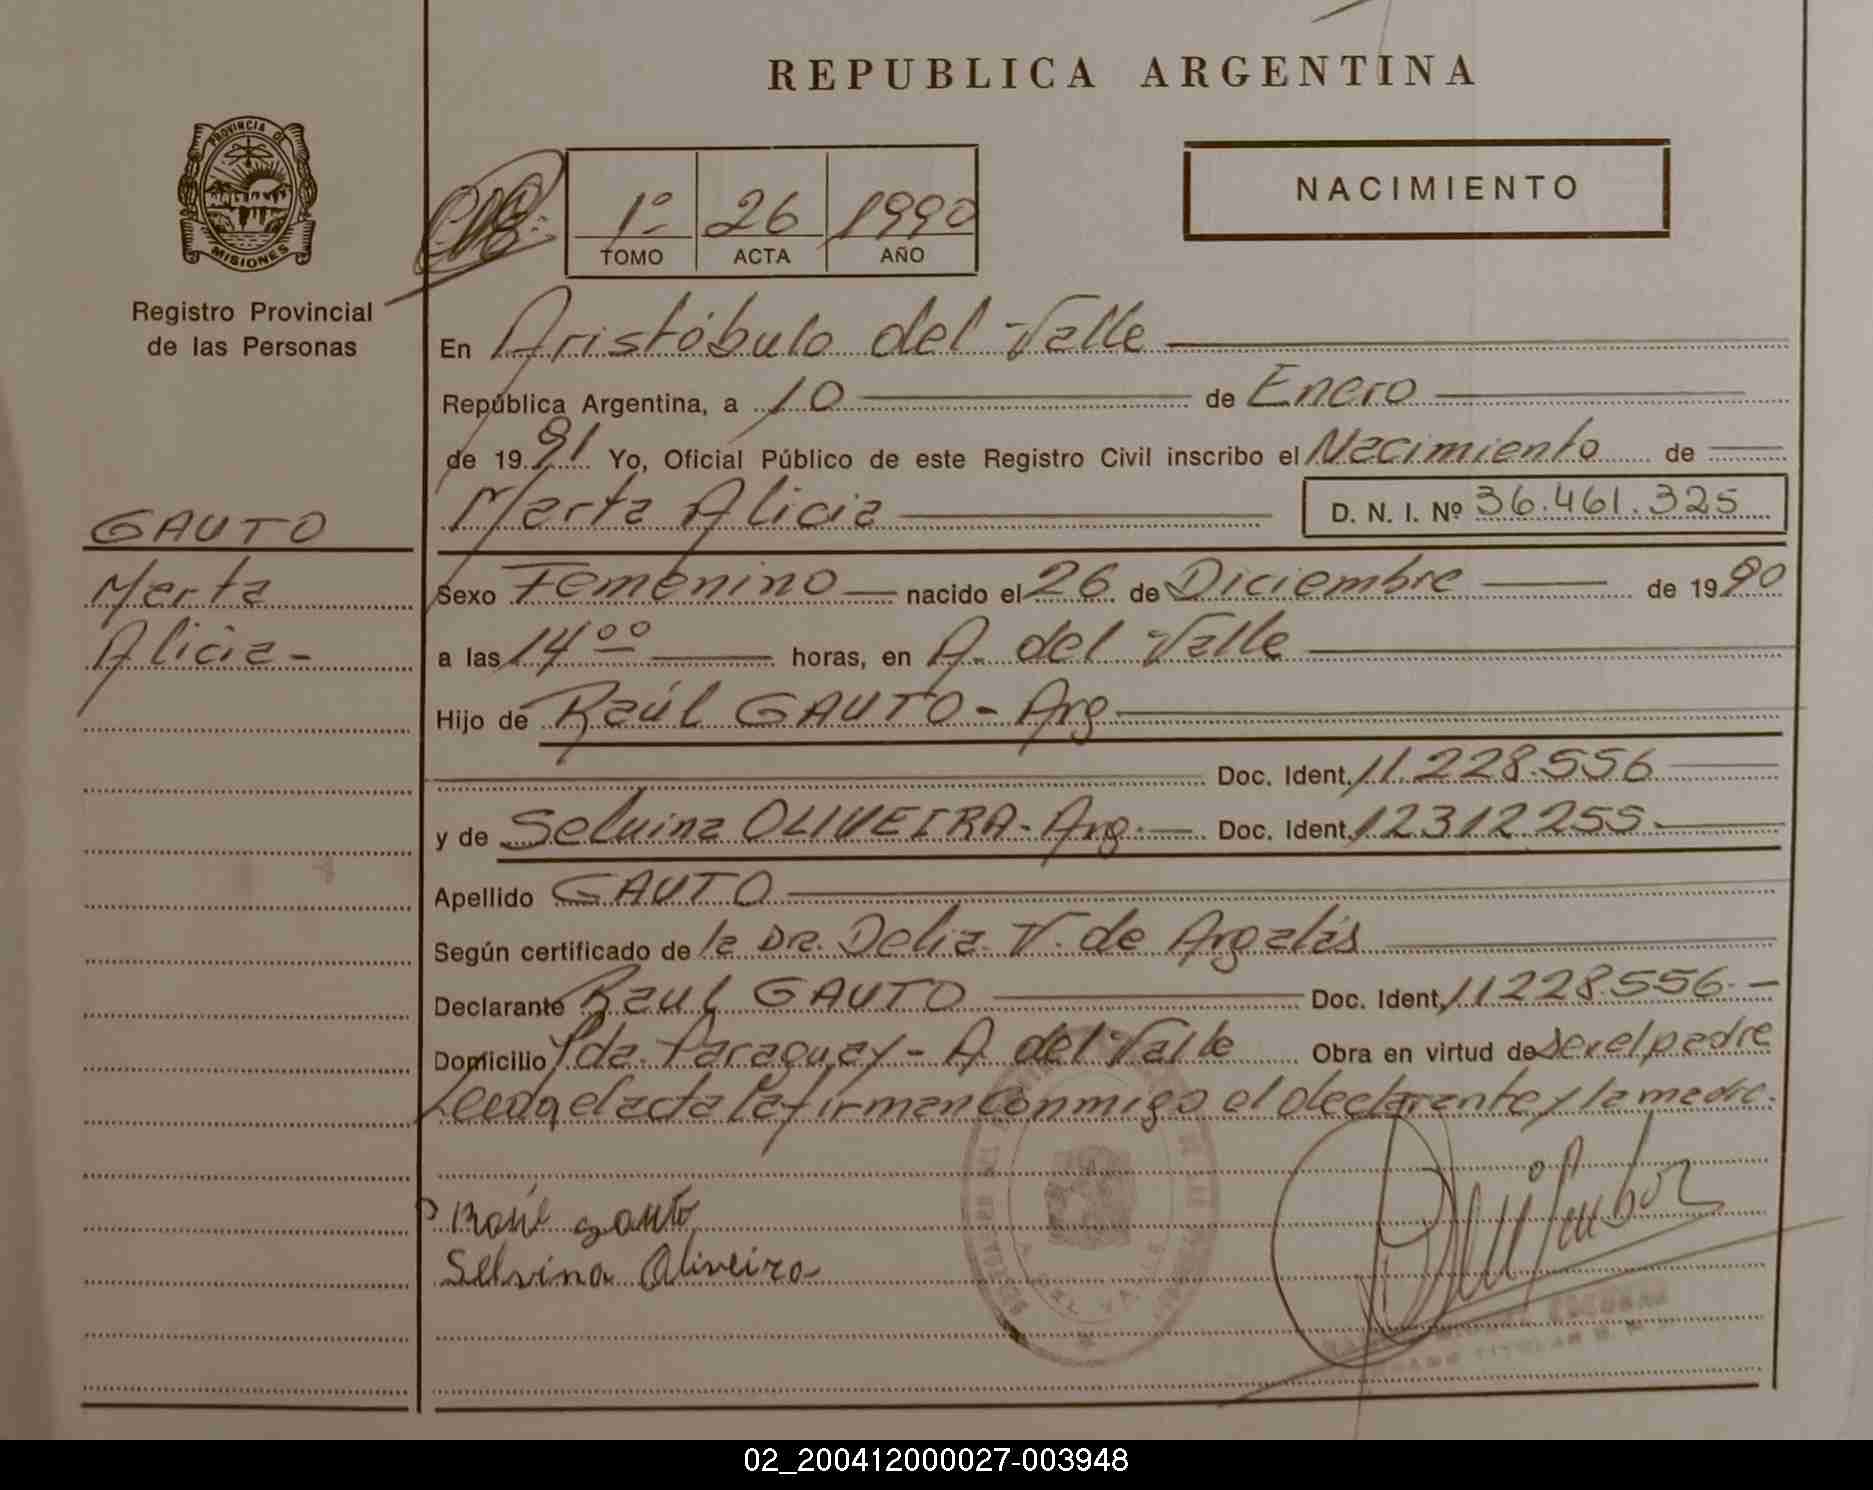 REPUBLICA ARGENTINA
PROVINCIA DE
MISIONES
Registro Provincial
de las Personas
1º 26 1990
TOMO ACTA AÑO
NACIMIENTO
En Aristóbulo del Valle
República Argentina, a 10 de Enero
de 1991 Yo, Oficial Público de este Registro Civil inscribo el Nacimiento de
Marta Alicia D. N. I. Nº 36.461.325
GAUTO
Marta
Alicia-
Sexo Femenino nacido el 26 de Diciembre de 1990
a las 14 00 horas, en A. del Valle
Hijo de Raúl GAUTO - Arg.
Doc. Ident. 11.228.556
y de Selvina OLIVEIRA - Arg. Doc. Ident. 12312255.
Apellido GAUTO
Según certificado de la Dra. Delia V. de
Declarante Raul GAUTO Doc. Ident. 11228556.-
Domicilio Pda. Paraguay - A. del Valle Obra en virtud de ser el padre
Leida el acta la firman conmigo el declarante y la madre.
Raúl gauto
Selvina Oliveira
A. DEL VALLE
ESCOBAR
TITULAR
02_200412000027-003948